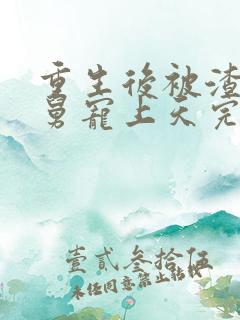 重生後被渣
舅寵上天完
壹貳叁拾伍
未經同意禁止轉載